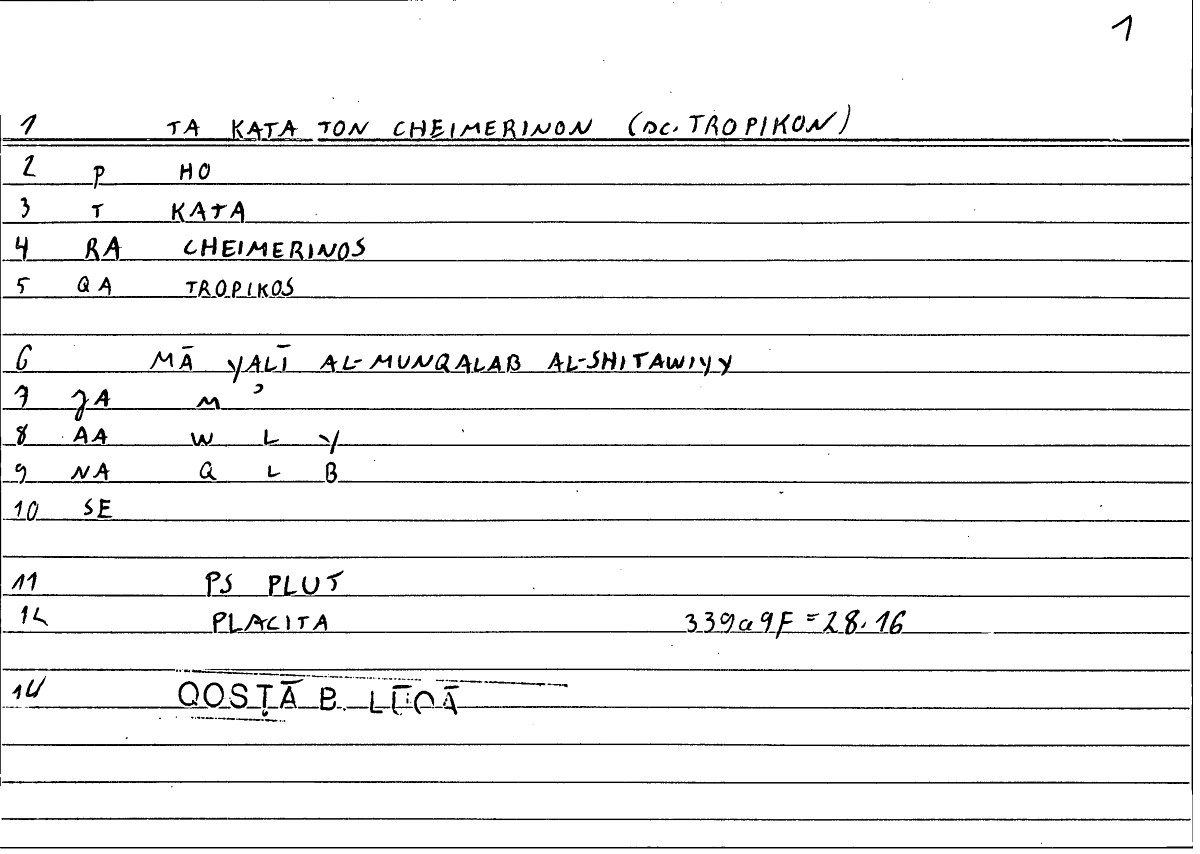 1
1 TA KATA TON CHEIMERINON (SC. TROPIKON)
2 P HO
3 T KATA
4 RA CHEIMERINOS
5 QA TROPIKOS
6 MĀ YALĪ AL-MUNQALAB AL-SHITAWIYY
7 JA M ʾ
8 AA W L Y
9 NA Q L B
10 SE
11 PS PLUT
12 PLACITA 339a9F = 28.16
14 QOSṬĀ B. LŪQĀ